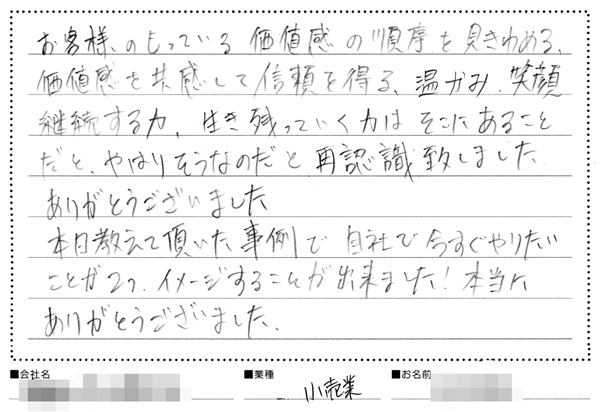 お客様のもっている価値感の順序を見きわめる、
価値感を共感して信頼を得る、温かみ、笑顔
継続する力、生き残っていく力はそこにあること
だと、やはりそうなのだと再認識致しました。
ありがとうございました
本日教えて頂いた事例で自社で今すぐやりたい
ことが2つ、イメージすることが出来ました！本当に
ありがとうございました。
■会社名 ■業種 小売業 ■お名前